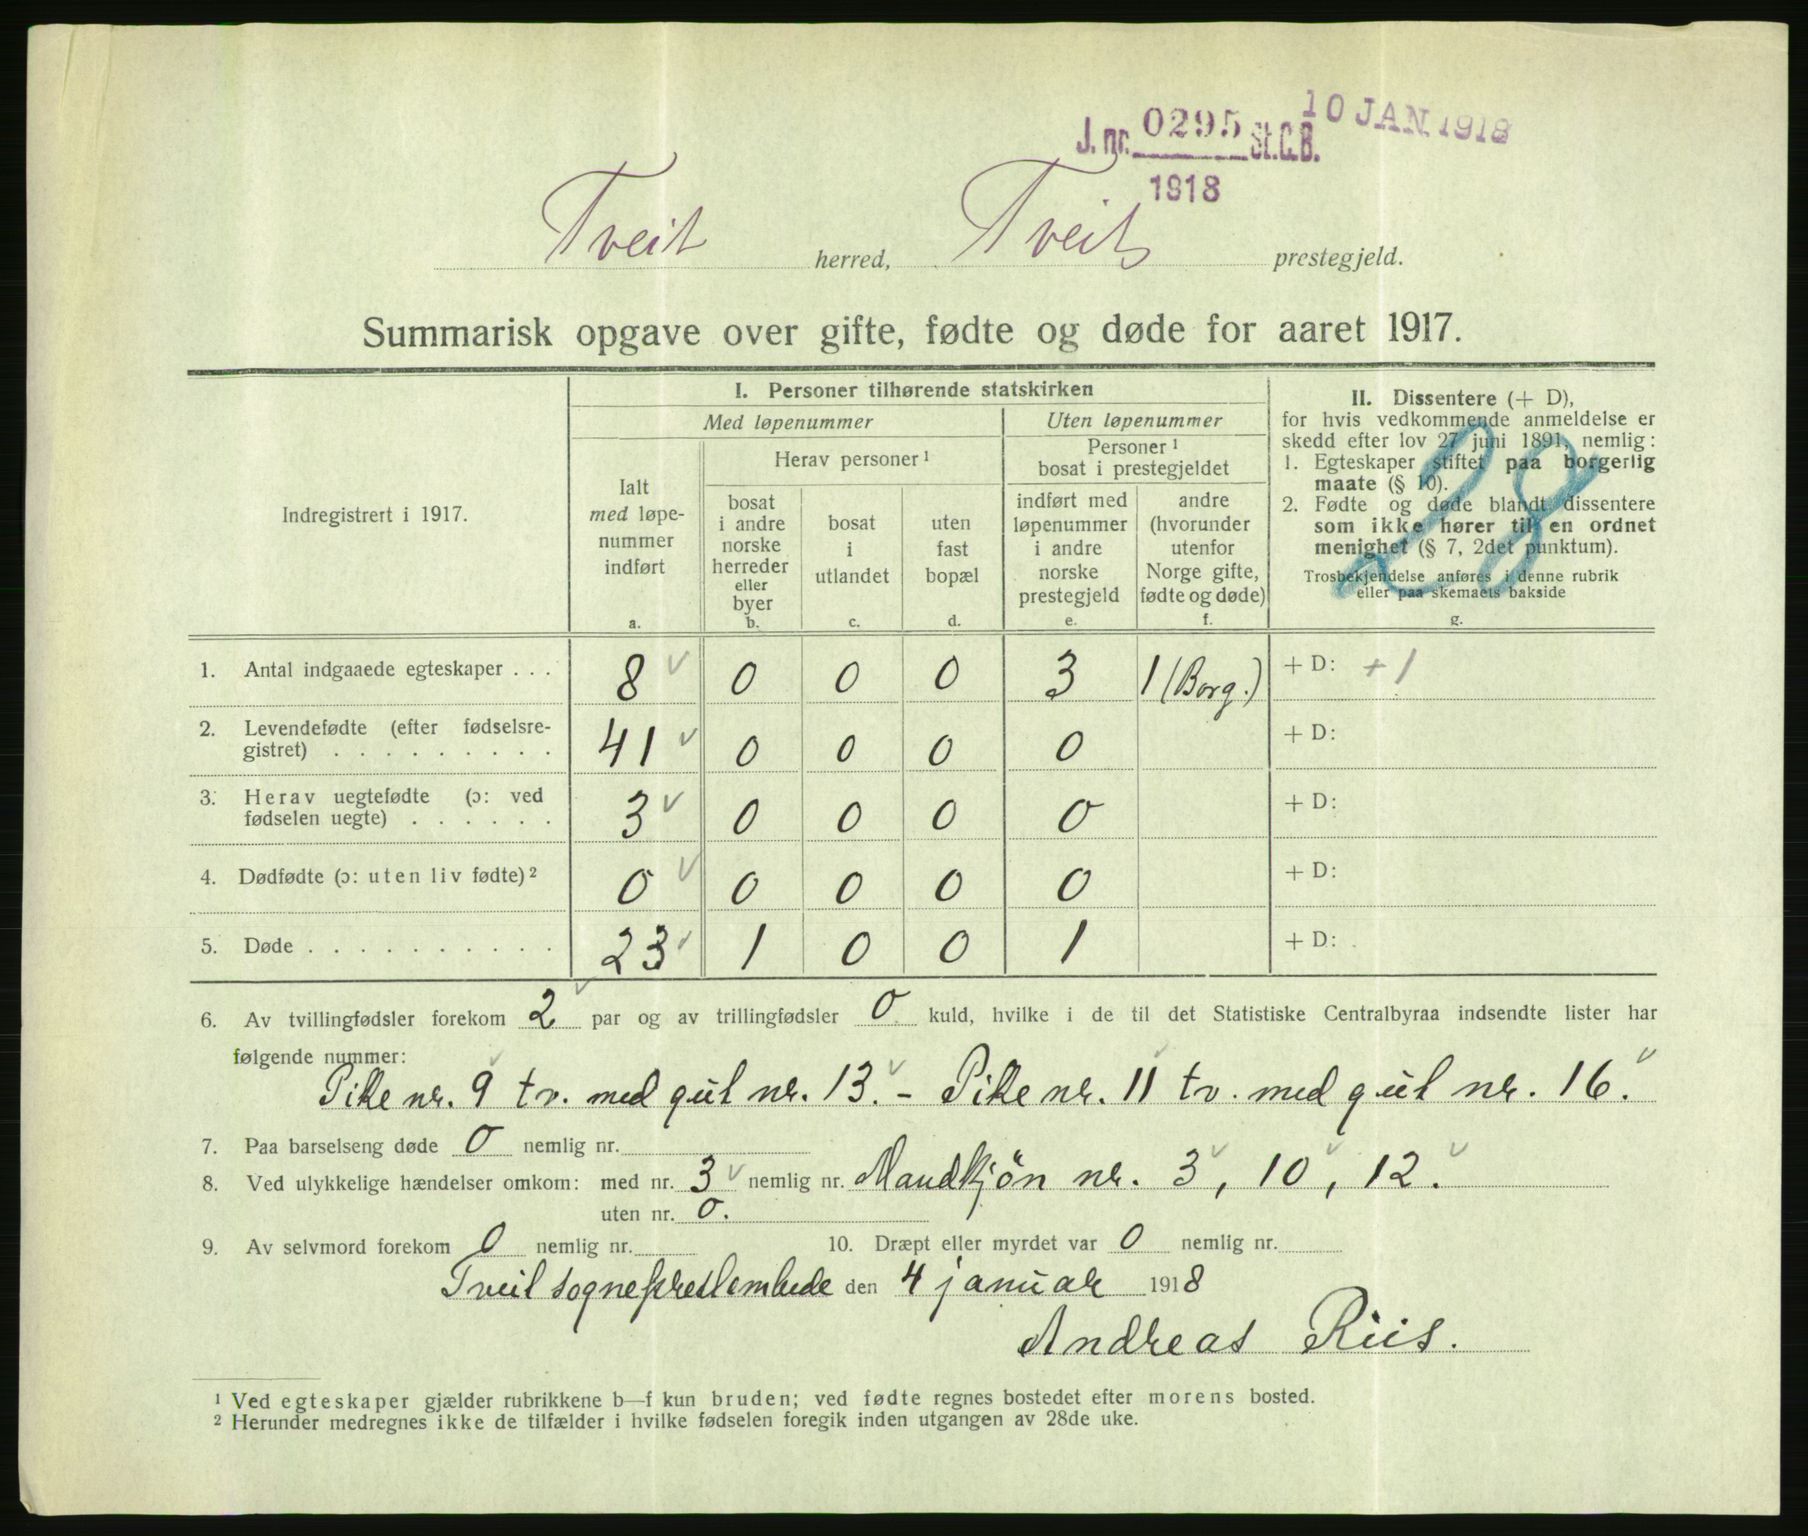 10 JAN 1918
J. nr. 0295 St.C.B.
1918
Tveit herred, Tveit prestegjeld.
Summarisk opgave over gifte, fødte og døde for aaret 1917.
Indregistrert i 1917.
I. Personer tilhørende statskirken
Med løpenummer
Uten løpenummer
Ialt
med løpe-
nummer
indført
a.
Herav personer¹
bosat
i andre
norske
herreder
eller
byer
b.
bosat
i
utlandet
c.
uten
fast
bopæl
d.
Personer¹
bosat i prestegjeldet
indført med
løpenummer
i andre
norske
prestegjeld
e.
andre
(hvorunder
utenfor
Norge gifte,
fødte og døde)
f.
II. Dissentere (+ D),
for hvis vedkommende anmeldelse er
skedd efter lov 27 juni 1891, nemlig:
1. Egteskaper stiftet paa borgerlig
maate (§ 10).
2. Fødte og døde blandt dissentere
som ikke hører til en ordnet
menighet (§ 7, 2det punktum).
Trosbekjendelse anføres i denne rubrik
eller paa skemaets bakside
g.
28
1. Antal indgaaede egteskaper . . . 8 ✓ 0 0 0 3 1 (Borg.) + D: +1
2. Levendefødte (efter fødselsre-
gistret) . . . . . . . . . 41 ✓ 0 0 0 0 + D:
3. Herav uegtefødte (ɔ: ved
fødselen uegte) . . . . . . 3 ✓ 0 0 0 0 + D:
4. Dødfødte (ɔ: uten liv fødte)² 0 ✓ 0 0 0 0 + D:
5. Døde . . . . . . . . . . 23 ✓ 1 0 0 1 + D:
6. Av tvillingfødsler forekom 2 ✓ par og av trillingfødsler 0 kuld, hvilke i de til det Statistiske Centralbyraa indsendte lister har
følgende nummer:
Pike nr. 9 ✓ tv. med gut nr. 13. ✓ – Pike nr. 11 ✓ tv. med gut nr. 16. ✓
7. Paa barselseng døde 0 nemlig nr.
8. Ved ulykkelige hændelser omkom: med nr. 3 ✓ nemlig nr. Mandkjøn nr. 3 ✓, 10 ✓, 12. ✓
uten nr. 0.
9. Av selvmord forekom 0 nemlig nr. 10. Dræpt eller myrdet var 0 nemlig nr.
Tveit sogneprestembede den 4 januar 1918
Andreas Riis.
¹ Ved egteskaper gjælder rubrikkene b—f kun bruden; ved fødte regnes bostedet efter morens bosted.
² Herunder medregnes ikke de tilfælder i hvilke fødselen foregik inden utgangen av 28de uke.